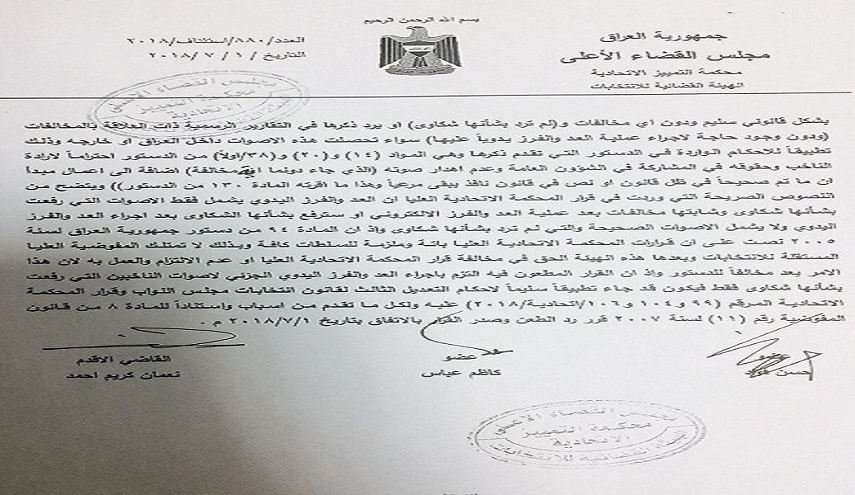 بسم الله الرحمن الرحيم
جمهورية العراق
مجلس القضاء الأعلى
محكمة التمييز الاتحادية
الهيئة القضائية للانتخابات
العدد/٨٨٠/استئناف/٢٠١٨
التاريخ / ١ / ٧ / ٢٠١٨
مجلس القضاء الأعلى
محكمة التمييز
الاتحادية
بشكل قانوني سليم ودون اي مخالفات و(لم ترد بشأنها شكاوى) او يرد ذكرها في التقارير الرسمية ذات العلاقة بالمخالفات
(ودون وجود حاجة لاجراء عملية العد والفرز يدوياً عليها) سواء تحصلت هذه الاصوات داخل العراق او خارجه وذلك
تطبيقاً للاحكام الواردة في الدستور التي تقدم ذكرها وهي المواد (١٤) و(٢٠) و(٣٨/اولاً) من الدستور احتراماً لارادة
الناخب وحقوقه في المشاركة في الشؤون العامة وعدم اهدار صوته (الذي جاء دونما اي مخالفة) اضافة الى اعمال مبدأ
ان ما تم صحيحاً في ظل قانون او نص في قانون نافذ يبقى مرعياً وهذا ما اقرته المادة ١٣٠ من الدستور)) ويتضح من
النصوص الصريحة التي وردت في قرار المحكمة الاتحادية العليا ان العد والفرز اليدوي يشمل فقط الاصوات التي رفعت
بشأنها شكاوى وشابتها مخالفات بعد عملية العد والفرز الالكتروني او سترفع بشأنها الشكاوى بعد اجراء العد والفرز
اليدوي ولا يشمل الاصوات الصحيحة والتي لم ترد بشأنها شكاوى واذ ان المادة ٩٤ من دستور جمهورية العراق لسنة
٢٠٠٥ نصت على ان قرارات المحكمة الاتحادية العليا باتة وملزمة للسلطات كافة وبذلك لا تمتلك المفوضية العليا
المستقلة للانتخابات وبعدها هذه الهيئة الحق في مخالفة قرار المحكمة الاتحادية العليا او عدم الالتزام والعمل به لان هذا
الامر يعد مخالفاً للدستور واذ ان القرار المطعون فيه التزم باجراء العد والفرز اليدوي الجزئي لاصوات الناخبين التي رفعت
بشأنها شكاوى فقط فيكون قد جاء تطبيقاً سليماً لاحكام التعديل الثالث لقانون انتخابات مجلس النواب وقرار المحكمة
الاتحادية المرقم (٩٩ و١٠٤ و١٠٦/اتحادية/٢٠١٨) عليه ولكل ما تقدم من اسباب واستناداً للمادة ٨ من قانون
المفوضية رقم (١١) لسنة ٢٠٠٧ قرر رد الطعن وصدر القرار بالاتفاق بتاريخ ٢٠١٨/٧/١ م .
القاضي الاقدم
نعمان كريم احمد
عضو
كاظم عباس
عضو
حسن فؤاد
مجلس القضاء الأعلى
محكمة التمييز
الاتحادية
الهيئة القضائية للانتخابات